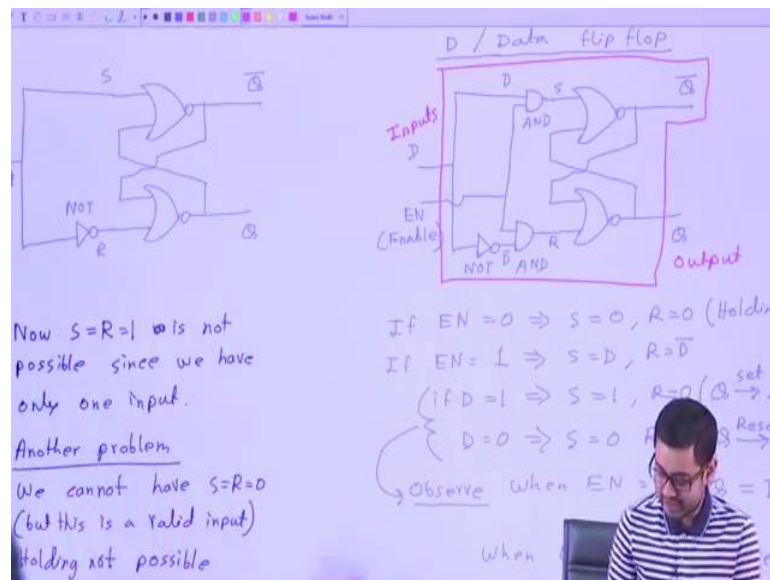 S
Q̅
NOT
R
Q
Now S=R=1 is not
possible since we have
only one input.
Another problem
We cannot have S=R=0
(but this is a valid input)
Holding not possible
D / Data flip flop
Inputs
D
D
S
Q̅
AND
EN
(Enable)
NOT
D̅
AND
R
Q
Output
If EN = 0 ⇒ S=0, R=0 (Holdin
If EN = 1 ⇒ S=D, R=D̅
(if D=1 ⇒ S=1, R=0 (Q set →
D=0 ⇒ S=0 Q Rese →
Observe When EN = Q =
When